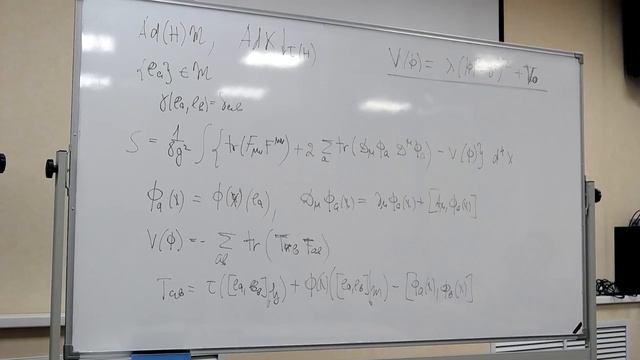 Ad(H) m, Ad K|τ(H)
V(ϕ) = λ( )² + V₀
{e_a} ∈ m
γ(e_a, e_b) = δ_ab
S = 1/8g² ∫ { tr(F_μν F^μν) + 2 Σ_a tr(D_μ ϕ_a D^μ ϕ_a) − V(ϕ)} d⁴x
ϕ_a(x) = ϕ(x)(e_a), D_μ ϕ_a(x) = ∂_μ ϕ_a(x) + [A_μ, ϕ_a(x)]
V(ϕ) = − Σ_ab tr(T_ab T_ab)
T_ab = τ([e_a, e_b]|_h) + ϕ(x)([e_a, e_b]|_m) − [ϕ_a(x), ϕ_b(x)]